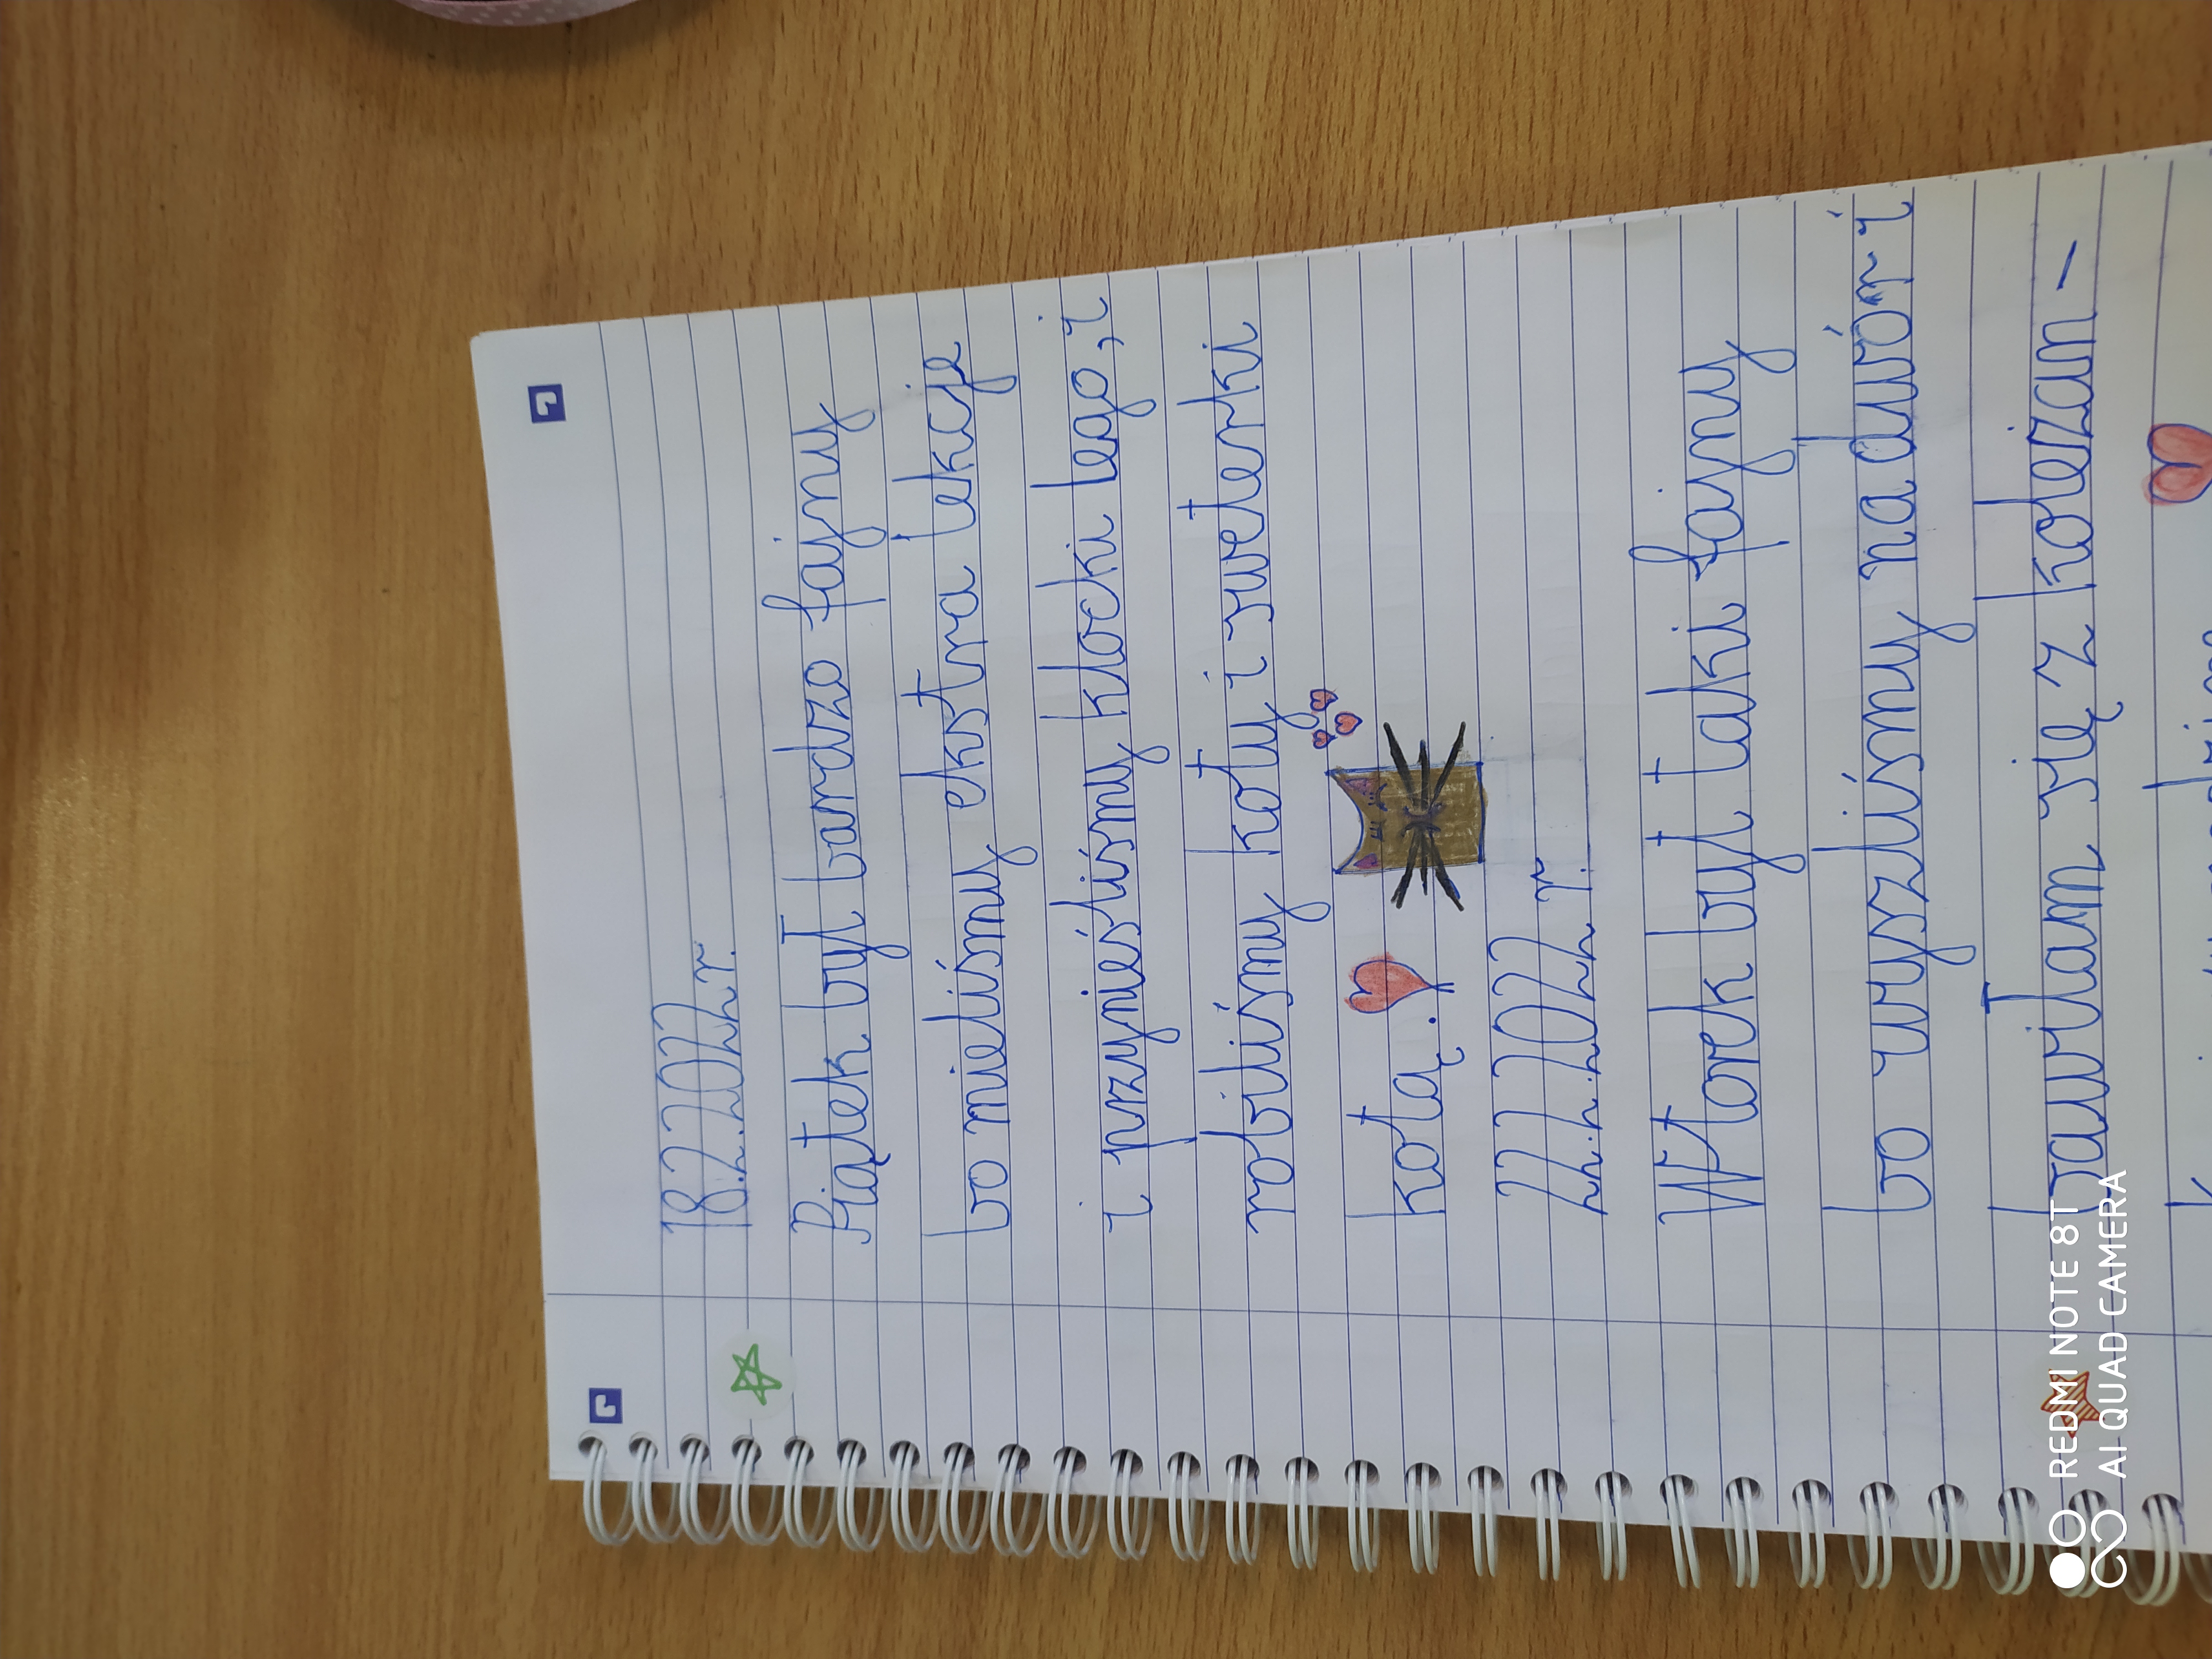 18.2.2022r.
Piątek był bardzo fajny
bo mieliśmy ekstra lekcje
i przynieśliśmy klocki lego, i
robiliśmy koty i sweterki
kotą.
22.2.2022 r.
Wtorek był taki fajny
bo wyszliśmy na dwór i
bawiłam się z koleżan-
REDMI NOTE 8T
AI QUAD CAMERA